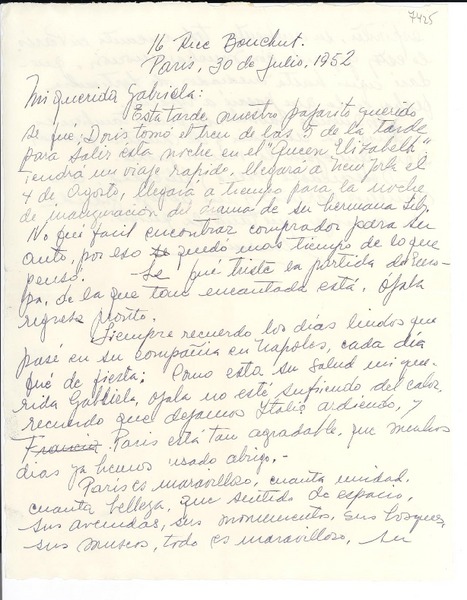 7425
16 Rue Bouchut.
Paris, 30 de Julio, 1952
Mi querida Gabriela:
Esta tarde nuestro pajarito querido
se fué: Doris tomó el tren de las 5 de la tarde
para salir esta noche en el "Queen Elizabeth"
tendrá un viaje rapido, llegará a New York el
4 de Agosto, llegará a tiempo para la noche
de inauguración del drama de su hermana
No fué facil encontrar comprador para su
auto, por eso se quedó mas tiempo de lo que
pensó. Se fué triste la partida de Euro-
pa, de la que tan encantada está. Ojala
regrese pronto.
Siempre recuerdo los días lindos que
pasé en su compañia en Napoles, cada día
fué de fiesta: Como esta su salud mi que-
rida Gabriela, ojala no esté sufriendo del calor,
recuerdo que dejamos Italia ardiendo, y
Francia Paris está tan agradable, que muchos
días ya hemos usado abrigo.-
Paris es maravilloso, cuanta unidad,
cuanta belleza, que sentido de espacio,
sus avenidas, sus monumentos, sus bosques,
sus museos, todo es maravilloso, su